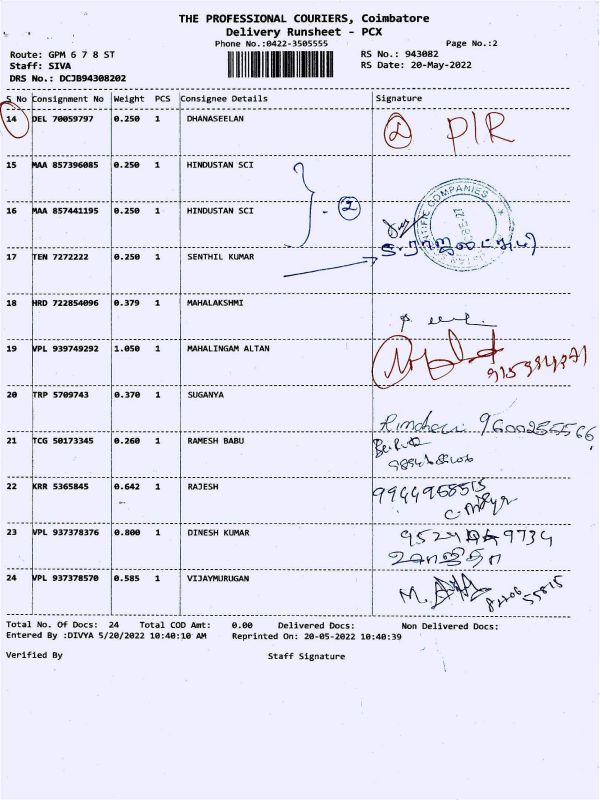 THE PROFESSIONAL COURIERS, Coimbatore
Delivery Runsheet - PCX
Phone No.:0422-3505555
Page No.:2
Route: GPM 6 7 8 ST
RS No.: 943082
Staff: SIVA
RS Date: 20-May-2022
DRS No.: DCJB94308202
S No Consignment No Weight PCS Consignee Details Signature
14 DEL 70059797 0.250 1 DHANASEELAN
15 MAA 857396085 0.250 1 HINDUSTAN SCI
16 MAA 857441195 0.250 1 HINDUSTAN SCI - 2
17 TEN 7272222 0.250 1 SENTHIL KUMAR
18 HRD 722854096 0.379 1 MAHALAKSHMI
19 VPL 939749292 1.050 1 MAHALINGAM ALTAN
20 TRP 5709743 0.370 1 SUGANYA
21 TCG 50173345 0.260 1 RAMESH BABU
22 KRR 5365845 0.642 1 RAJESH 9944958515
23 VPL 937378376 0.800 1 DINESH KUMAR
24 VPL 937378570 0.585 1 VIJAYMURUGAN
Total No. Of Docs: 24 Total COD Amt: 0.00 Delivered Docs: Non Delivered Docs:
Entered By :DIVYA 5/20/2022 10:40:10 AM Reprinted On: 20-05-2022 10:40:39
Verified By Staff Signature